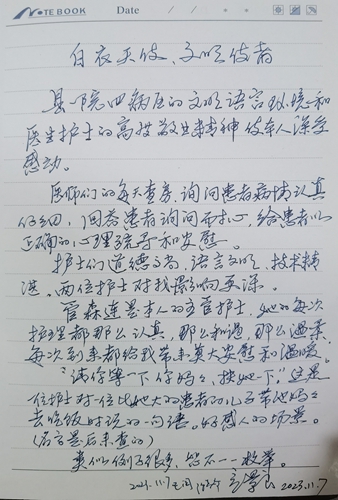 NOTE BOOK Date / /
白衣天使、文明使者
县一院四病区的文明语言环境和
医生护士的高技敬业精神使本人深受
感动。
医师们的每天查房,询问患者病情认真
仔细,回答患者询问而扎心,给患者以
正确的心理疏导和安慰。
护士们道德高尚,语言文明,技术精
湛,两位护士对我影响更深。
管森连是本人的主管护士,她的每次
护理都那么认真,那么和谐,那么温柔,
每次到来都给我带来莫大安慰和温暖。
"请你等一下你妈妈,扶她下。"这是一
位护士对一位比她大的患者的儿子带他妈妈
去吃饭时说的一句话。好感人的场景。
(名字是后来查的)
类似例子很多,恕不一一枚举。
2023.11.7